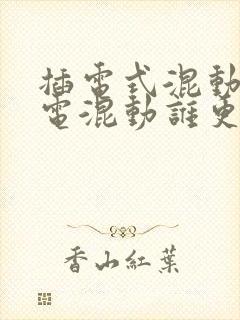 插電式混動
電混動誰更
香山紅葉